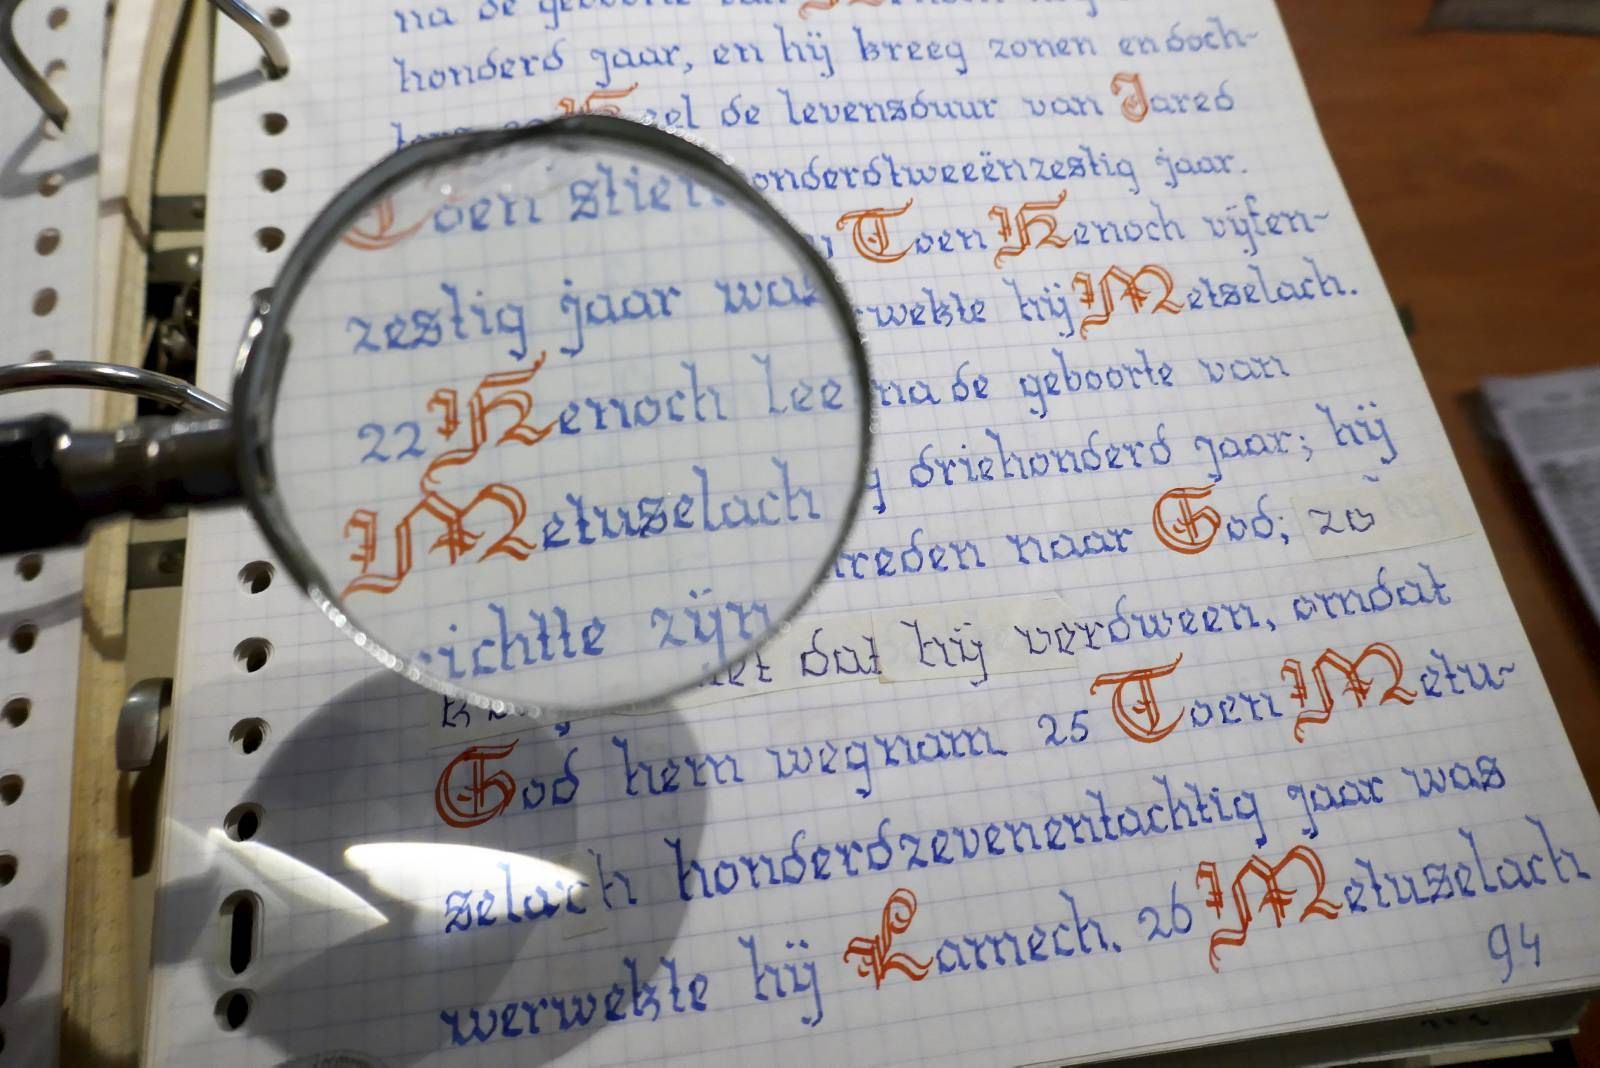 na de geboorte van
honderd jaar, en hij kreeg zonen en doch-
eel de levensduur van Jared
onderdtweeënzestig jaar.
Toen stier
Toen Henoch vijfen-
zestig jaar was
verwekte hij Metselach.
22 Henoch lee na de geboorte van
Metuselach driehonderd jaar; hij
richtte zijn reden naar God; zo
dat hij verdween, omdat
God hem wegnam 25 Toen Metu-
selach honderdzevenentachtig jaar was
werwekte hij Lamech. 26 Metuselach
94